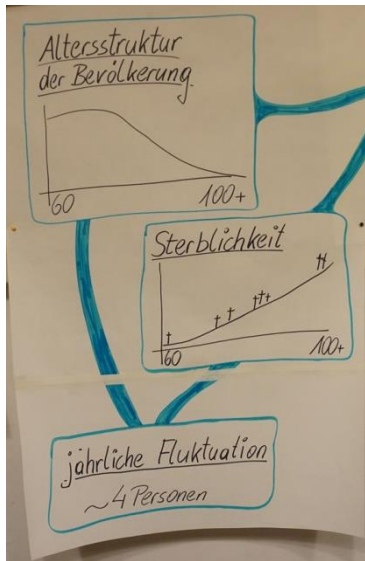 Altersstruktur
der Bevölkerung
60 100+
Sterblichkeit
60 100+
jährliche Fluktuation
~4 Personen